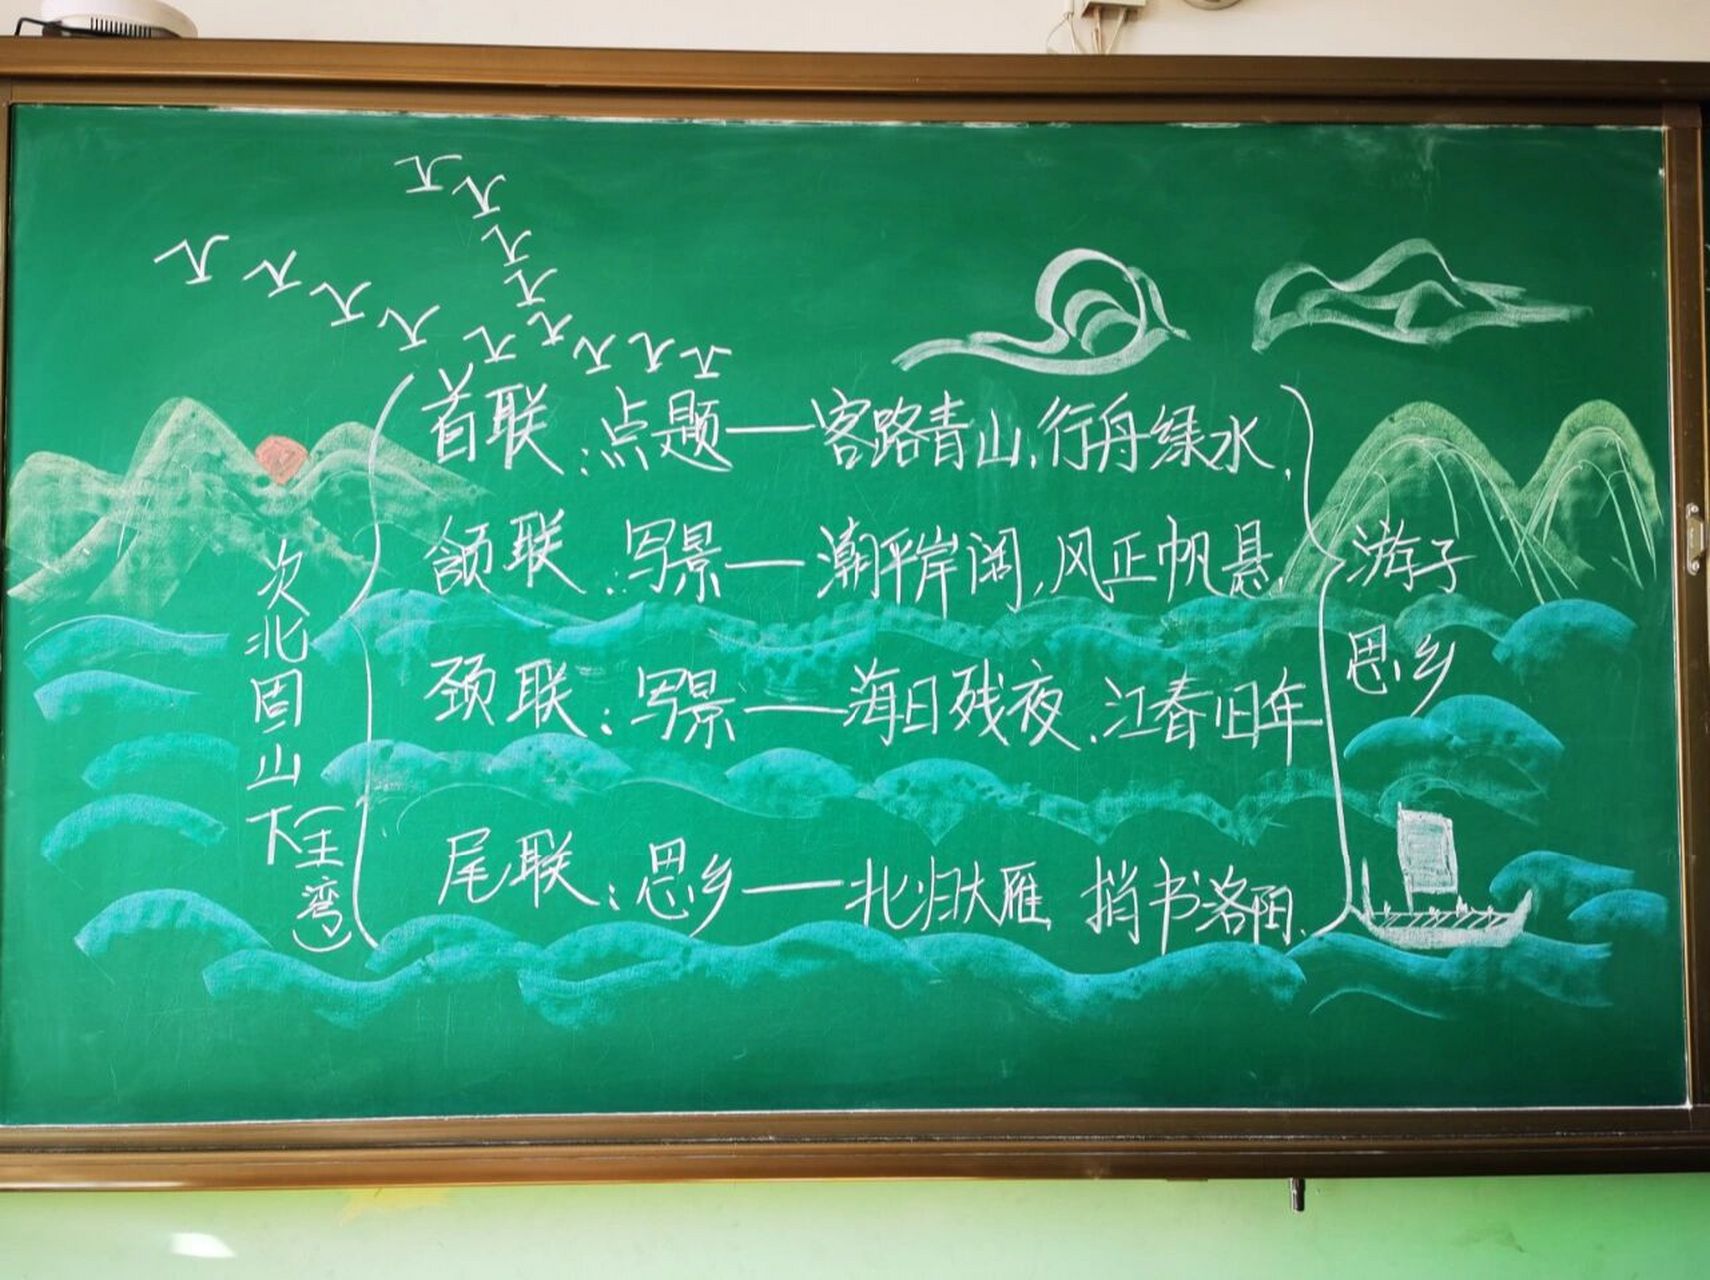 次北固山下(王湾)
首联:点题——客路青山,行舟绿水,
颔联:写景——潮平岸阔,风正帆悬,
颈联:写景——海日残夜,江春旧年
尾联:思乡——北归大雁 捎书洛阳.
游子
思乡